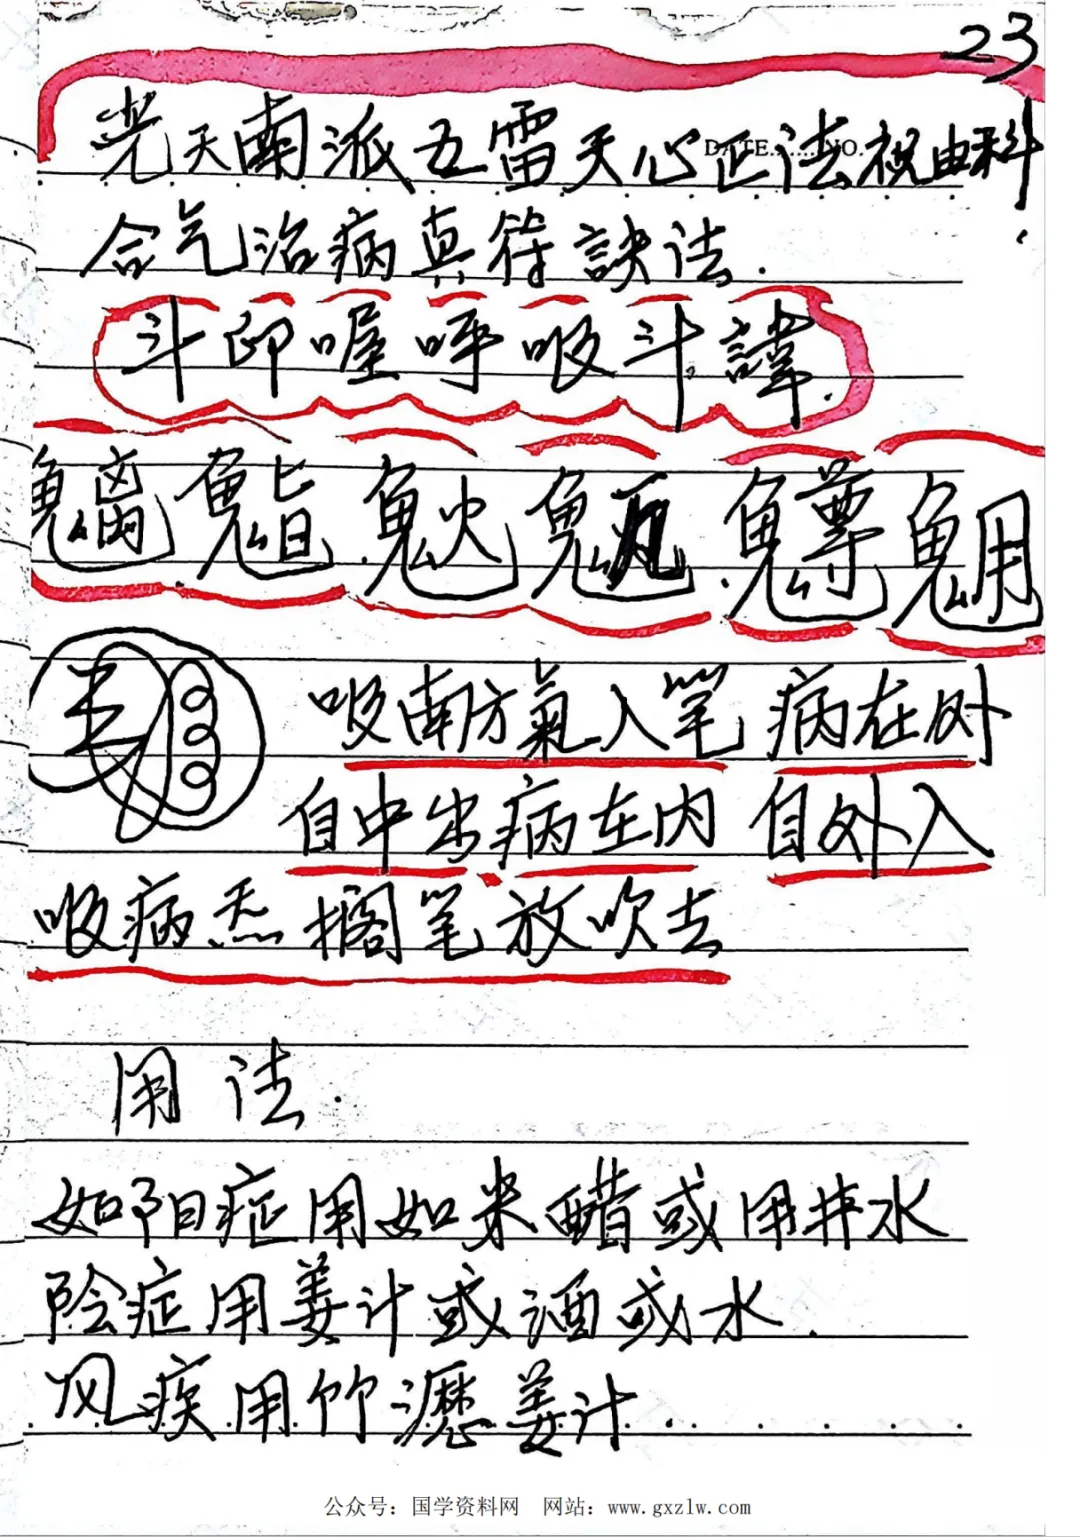 23
DATE......NO.
光天南派五雷天心正法祝由科
合气治病真符訣法.
斗印喔呼吸斗諱.
魒
吸南方氣入笔 病在外
自中出.病在内 自外入
吸病炁搁笔放吹去
用法.
如阳症用如米醋或用井水
阴症用姜计或酒或水.
风疾用竹瀝姜计
公众号：国学资料网 网站：www.gxzlw.com